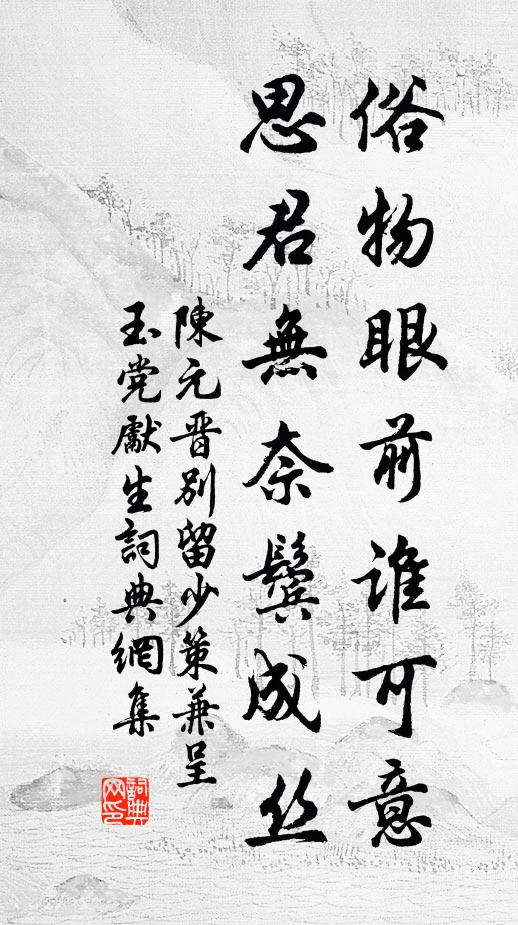 俗物眼前谁可意
思君無奈鬓成丝
陳元晋别留少策兼呈
玉党獻生詞典網集
詞典